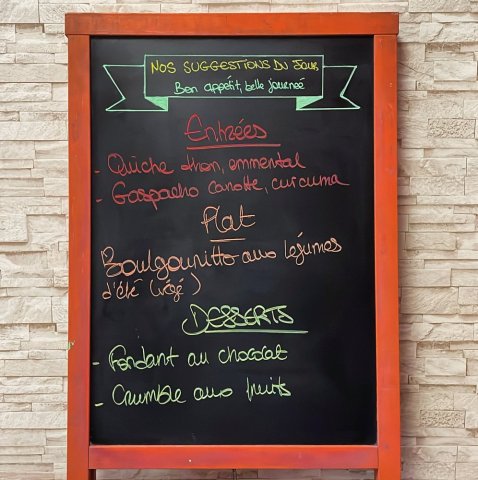 NOS SUGGESTIONS DU JOUR
Bon appétit, belle journeé
Entrées
- Quiche thon, emmental
- Gaspacho carotte, curcuma
Plat
Boulgouritto aux légumes
d'été (végé)
DESSERTS
- Fondant au chocolat
- Crumble aux fruits